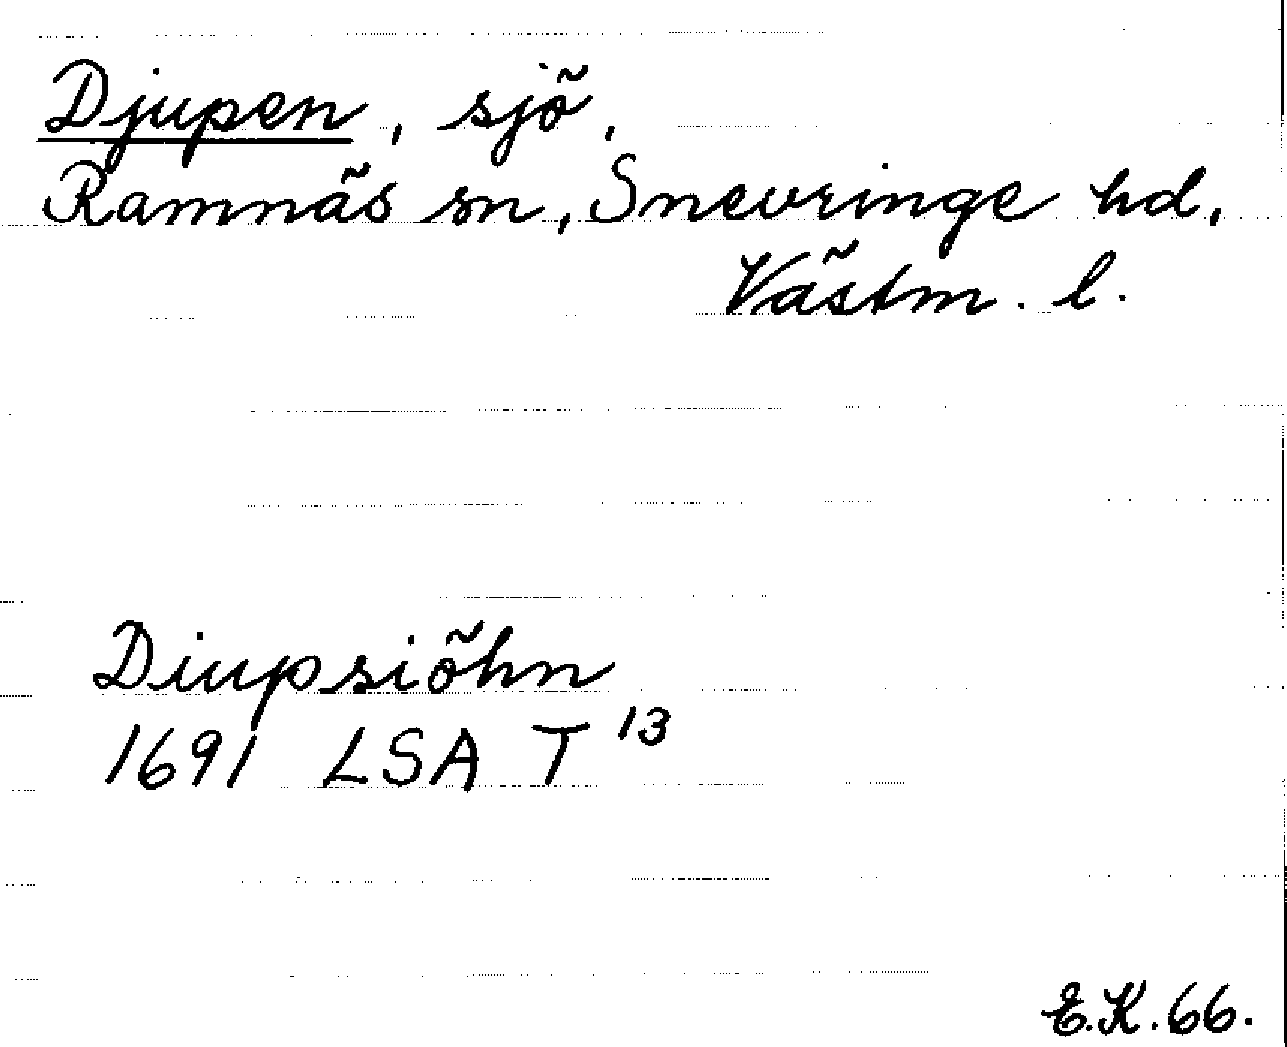 Djupen, sjö,
Ramnäs sn, Snevringe hd,
Västm. l.
Diupsiöhn
1691 LSA T 13
E.K. 66.